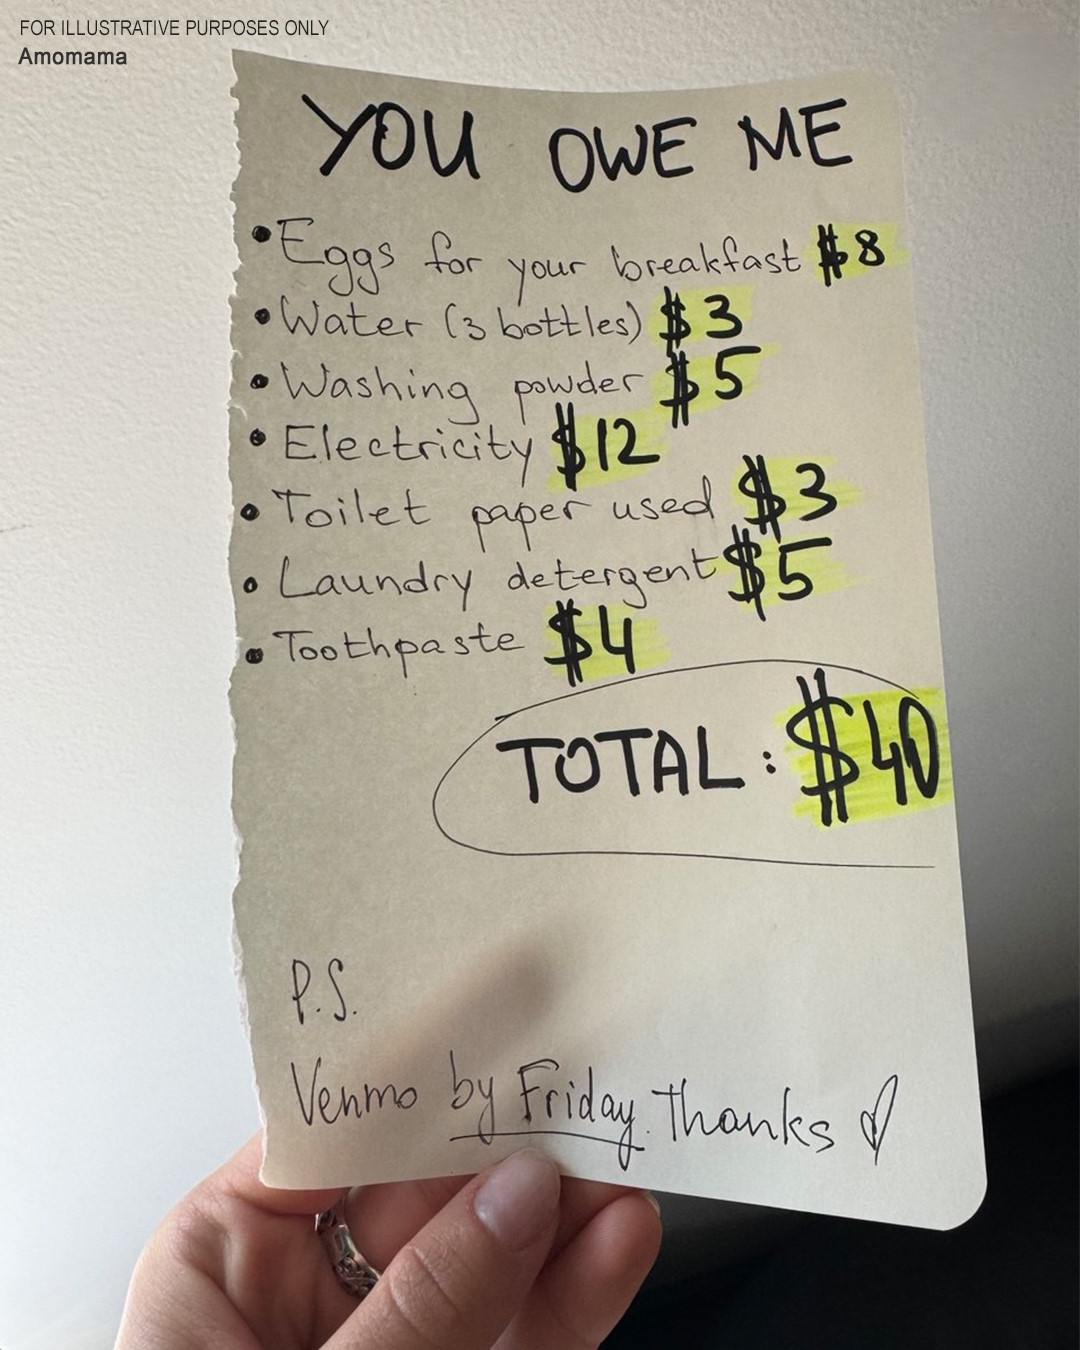 FOR ILLUSTRATIVE PURPOSES ONLY
Amomama
YOU OWE ME
• Eggs for your breakfast $8
• Water (3 bottles) $3
• Washing powder $5
• Electricity $12
• Toilet paper used $3
• Laundry detergent $5
• Toothpaste $4
TOTAL: $40
P.S.
Venmo by Friday. Thanks ♡